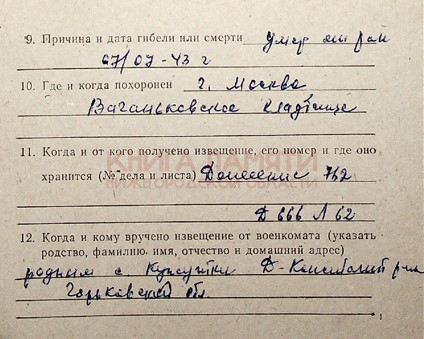 9. Причина и дата гибели или смерти умер от ран
07/07-43 г
10. Где и когда похоронен г. Москва,
Ваганьковское кладбище
11. Когда и от кого получено извещение, его номер и где оно
КНИГА ПАМЯТИ
хранится (№ дела и листа) Донесение 762
НИЖЕГОРОДСКОЙ ОБЛАСТИ
Д 666 Л 62
12. Когда и кому вручено извещение от военкомата (указать
родство, фамилию, имя, отчество и домашний адрес)
родным с. Д-Константин р-на
Горьковской обл.